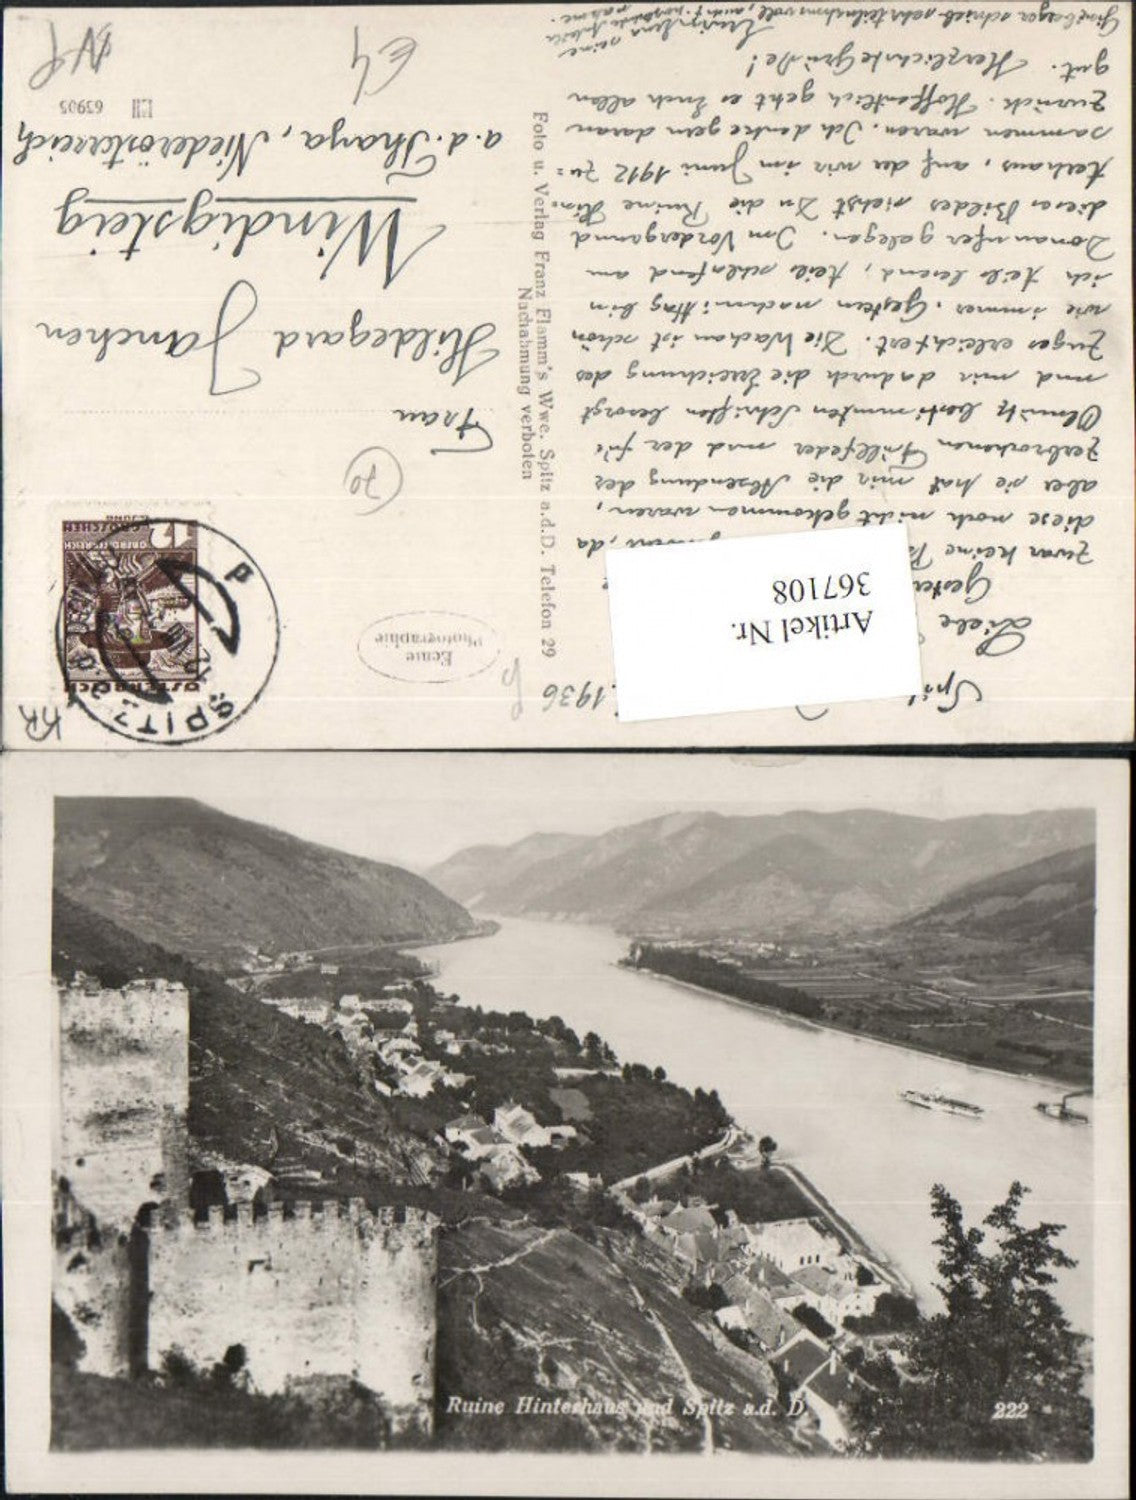 Spitz
1936
Liebe
Gestern
zwar keine
, da
diese noch nicht gekommen waren,
aber sie hat mir die Absendung der
zerbrochenen Füllfeder und der für
Olmütz bestimmten Schriften besorgt
und mir dadurch die Erleichterung des
Zuges erleichtert. Die Wachau ist schön
wie immer. Gestern nachmittag bin
ich teils lesend, teils schlafend am
Donauufer gelegen. Im Vordergrund
dieses Bildes siehst Du die Ruine Hin:
terhaus, auf der wir im Juni 1912 zu=
sammen waren. Ich denke gern daran
zurück. Hoffentlich geht es Euch allen
gut. Herzlichste Grüße!
Ginzberger schrieb sehr teilnahmsvoll,
Artikel Nr.
367108
Foto u. Verlag Franz Flamm's Wwe. Spitz a.d.D. Telefon 29
Nachahmung verboten
Echte
Photographie
KR
SPITZ a.d.
ÖSTERREICH
GROSCHEN
70
Frau
Hildegard Janchen
Windigsteig
a.d. Thaya, Niederösterreich
63905
E4
Ruine Hinterhaus und Spitz a.d. D.
222